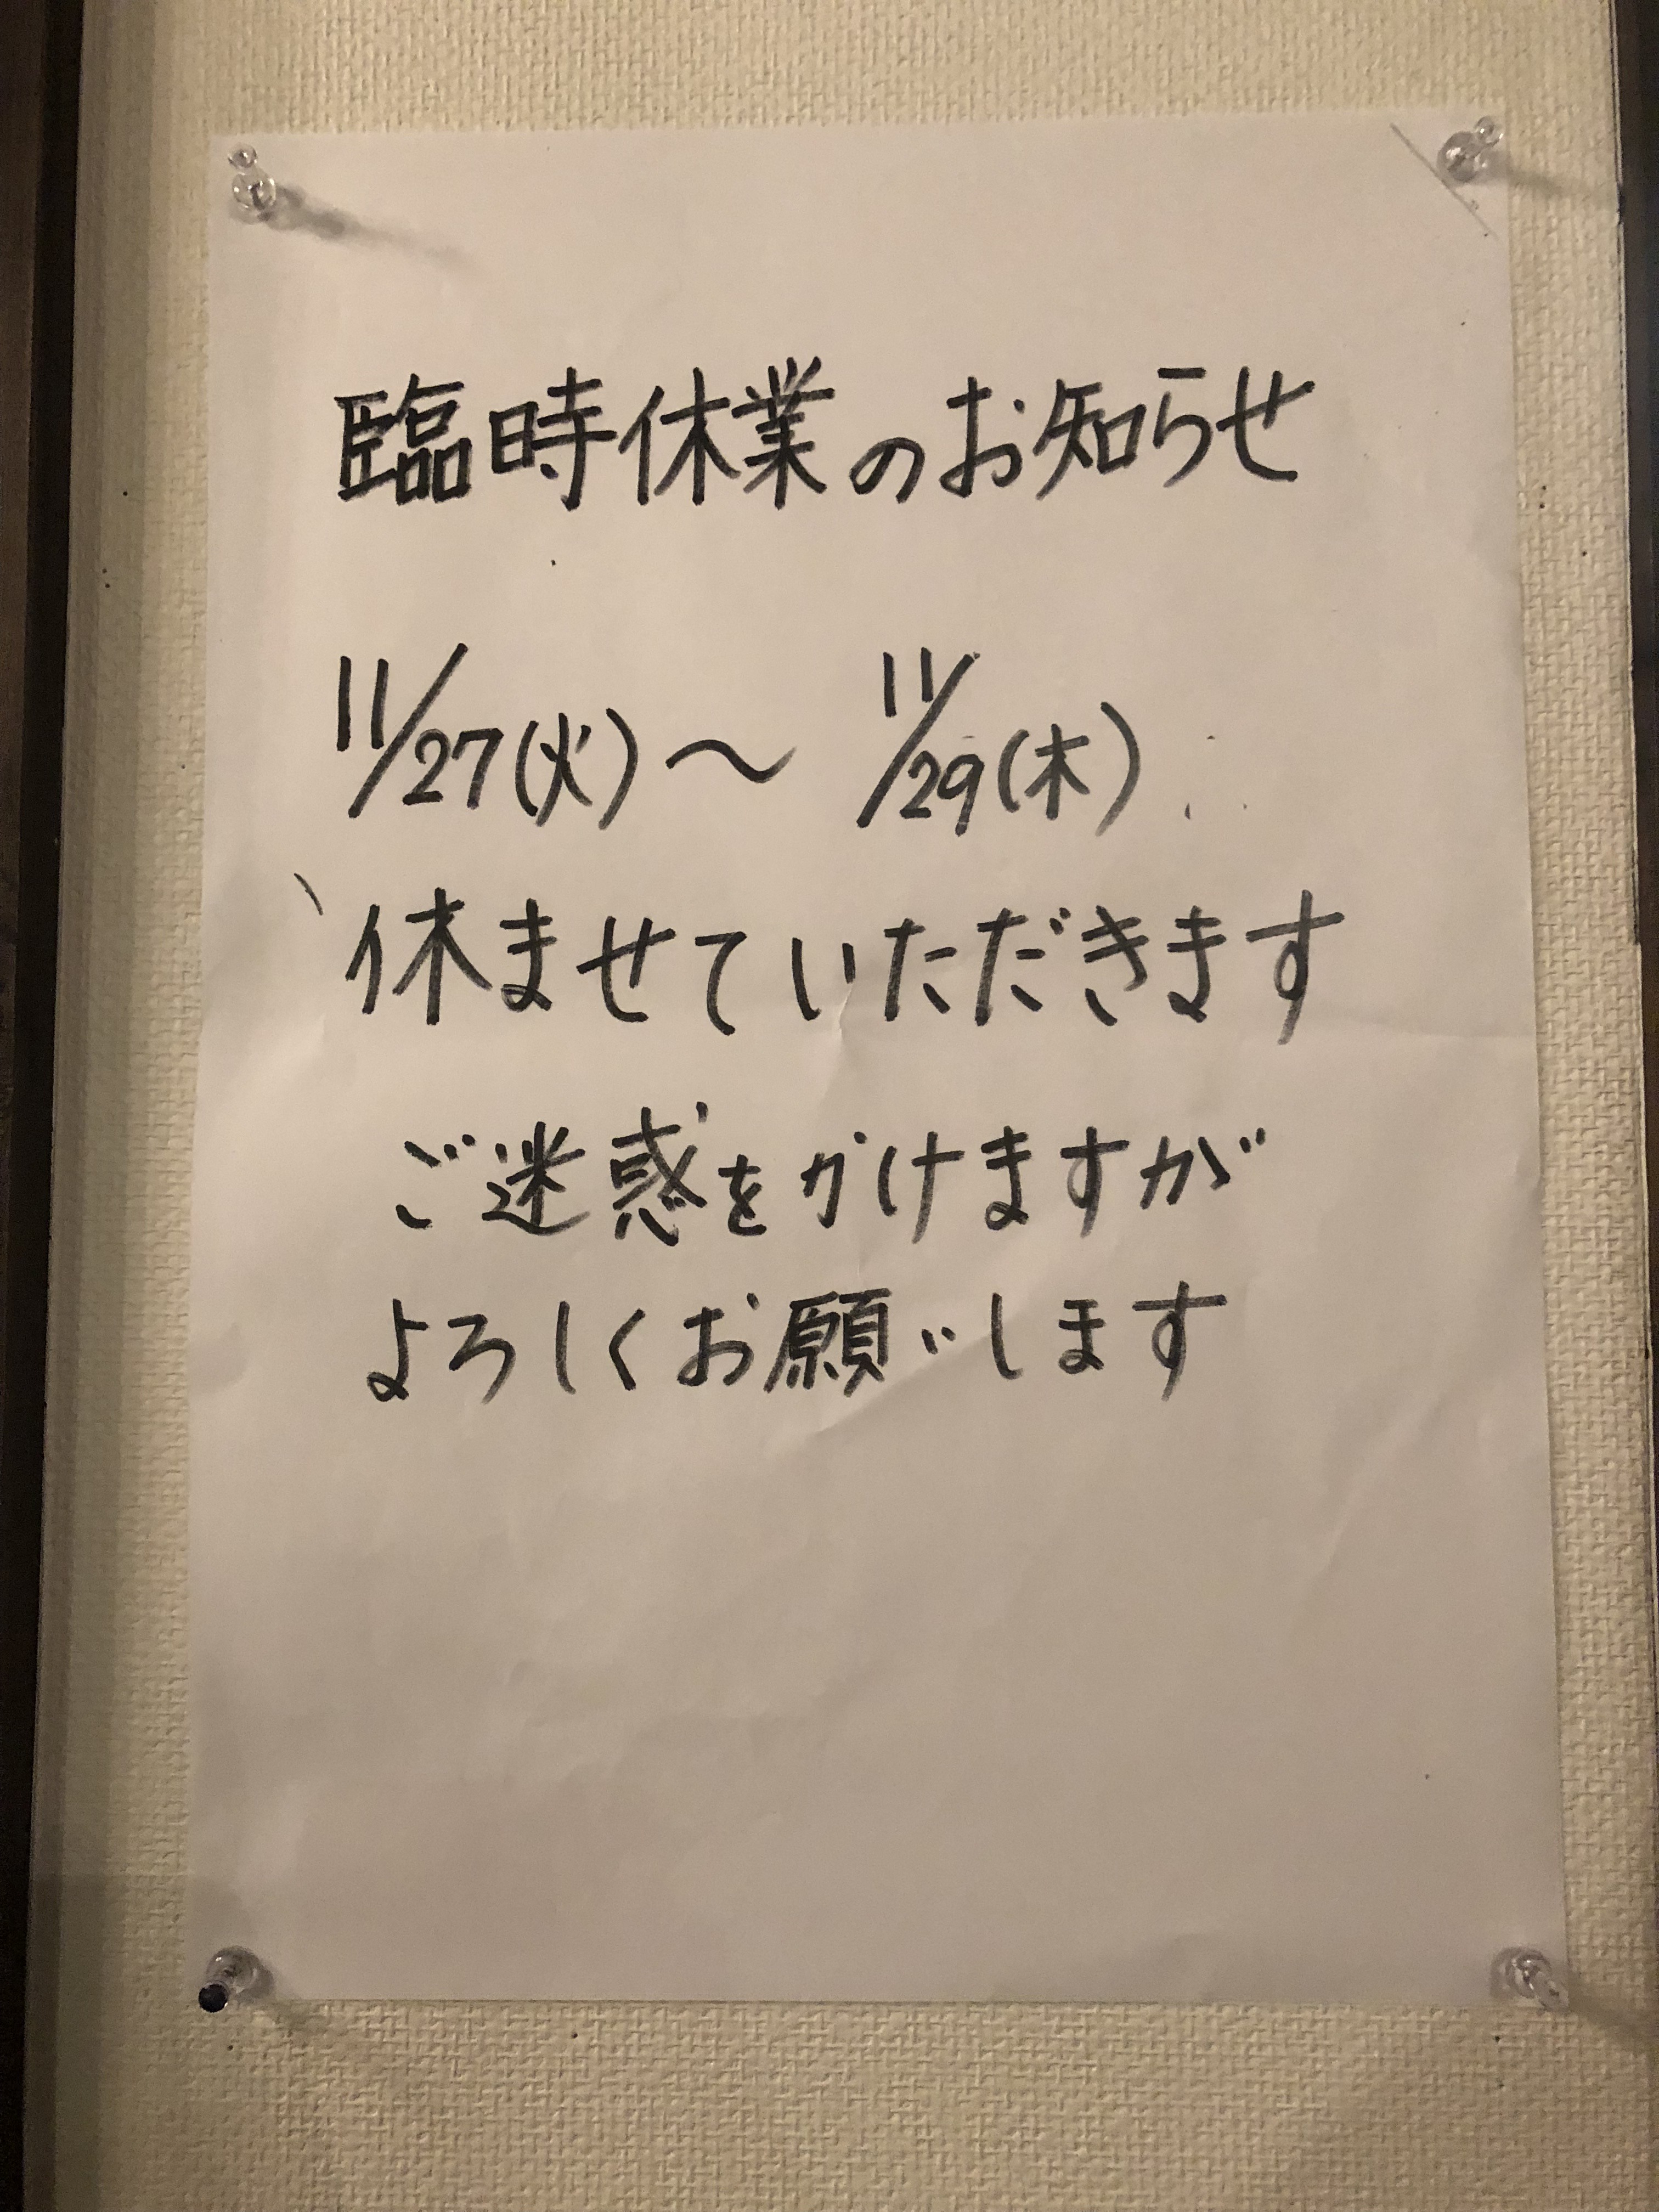 臨時休業のお知らせ
11/27(火)～ 11/29(木)
休ませていただきます
ご迷惑をかけますが
よろしくお願いします